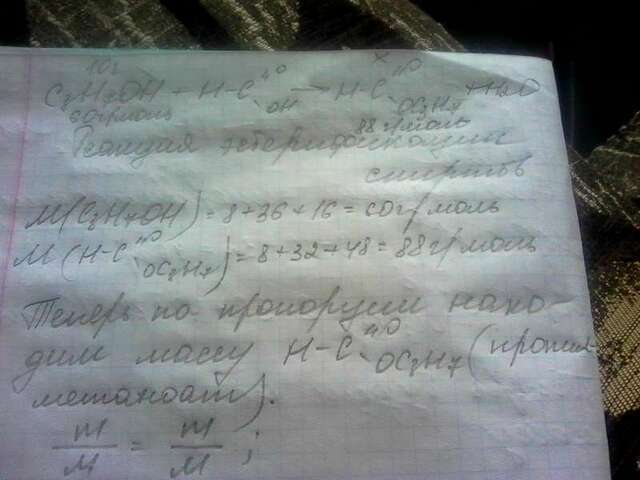 10г x
C3H7OH + H-C =O OH → H-C =O OC3H7 + H2O
60г/моль 88г/моль
Реакция этерификации
спиртов
M(C3H7OH) = 8+36+16 = 60г/моль
M(H-C =O OC3H7) = 8+32+48 = 88г/моль
Теперь по пропорции нахо-
дим массу H-C =O OC3H7 (пропил
метаноат).
m/M = m/M ;